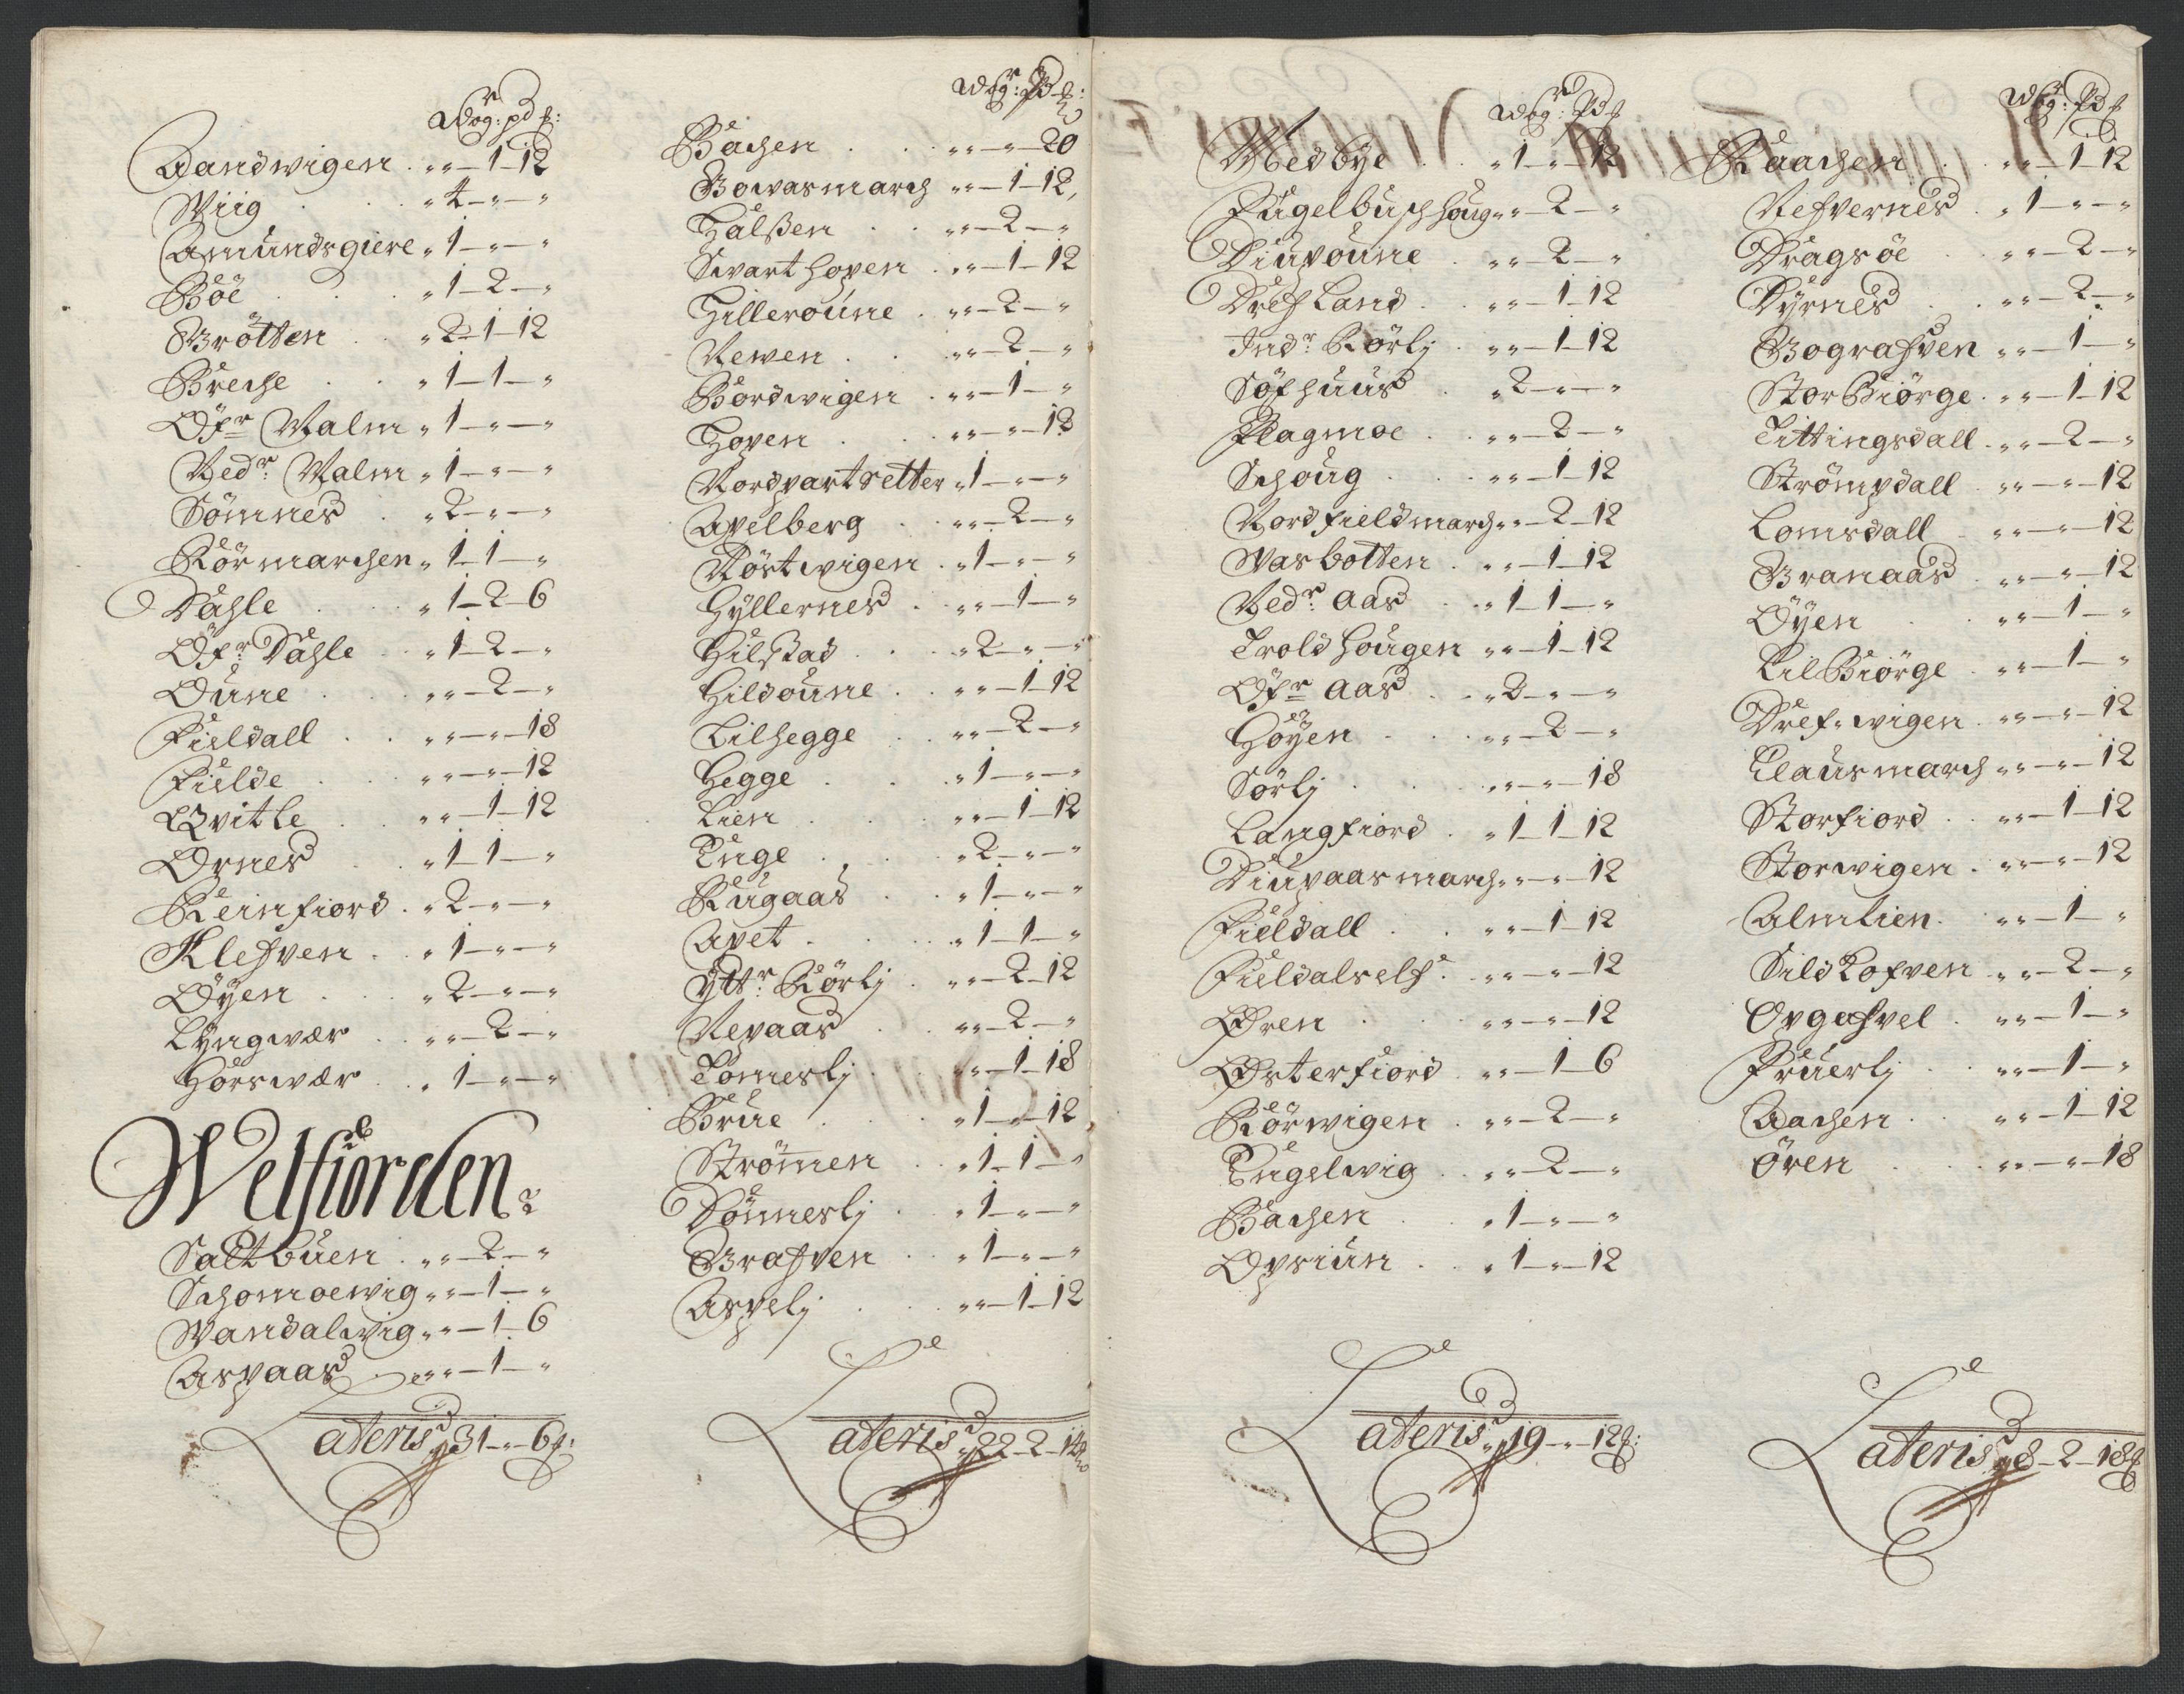 Wog: pd ℔:
Aandwigen . „ „ — 1 — 12
Wiig . . „ 4 — „ — „
Amundsgiere „ 1 — „ — „
Böe . . „ 1 — 2 — „
Grötten . . „ 2 — 1 — 12
Breche . . „ 1 — 1 — „
Øfr Walm „ 1 — „ — „
Nedr: Walm „ 1 — „ — „
Sömnes . „ 2 — „ — „
Rörmarchen „ 1 — 1 — „
Dahle . . „ 1 — 2 — 6
Øfr: Dahle . „ 1 — 2 — „
Oune . . „ „ — 2 — „
Fieldall . . „ „ — „ — 18
Fielde . . „ „ — „ — 12
Qvitle . . „ „ — 1 — 12
Ornes . „ 1 — 1 — „
Reinfiord . „ 2 — „ — „
Klefven . . „ 1 — „ — „
Øyen . . „ 2 — „ — „
Lyngwær . „ „ — 2 — „
Horswær . „ 1 — „ — „
Welfiorden
Saltbuen . „ „ — 2 — „
Schomoewig „ „ — 1 — „
Wandalwig „ „ — 1 — 6
Aspaas . „ „ — 1 — „
Lateris „ 31 — „ — 6 ℔:
Wog: Pd ℔:
Bachen . . „ „ — „ — 20
Bowasmarch „ „ — 1 — 12
Halßen . . „ „ — 2 — „
Swarthopen . „ „ — 1 — 12
Hilleroune . „ „ — 2 — „
Newen . . „ „ — 2 — „
Bordwigen . „ „ — 1 — „
Hopen . . „ „ — „ — 12
Nordvartsetter „ 1 — „ — „
Apelberg . „ „ — 2 — „
Röstwigen . „ 1 — „ — „
Hyllernes . „ „ — 1 — „
Hilstad . . „ 2 — „ — „
Hildoune . „ „ — 1 — 12
Lilhegge . „ „ — 2 — „
Hegge . . „ 1 — „ — „
Lien . . „ „ — 1 — 12
Enge . . „ 2 — „ — „
Rugaas . „ 1 — „ — „
Apet . . „ 1 — 1 — „
Yttr: Rörlj . „ „ — 2 — 12
Nepaas . „ „ — 2 — „
Tomerlj . „ „ — 1 — 18
Brue . . „ 1 — „ — 12
Strömen . „ 1 — 1 — „
Dönneslj . „ 1 — „ — „
Grafven . „ 1 — „ — „
Aspelj . . „ „ — 1 — 12
Lateris „ 22 — 2 — 14
Wog: Pd ℔
Medbye . . „ 1 — „ — 12
Fugelbuschhoug „ „ — 2 — „
Diupoune . „ „ — 2 — „
Drefland . „ „ — 1 — 12
Indr: Rörlj . „ „ — 1 — 12
Söfhuus . „ 2 — „ — „
Plagmoe . „ „ — 2 — „
Schoug . . „ „ — 1 — 12
Nordfieldmarch „ „ — 2 — 12
Wasbotten . „ „ — 1 — 12
Nedr: Aas . „ 1 — 1 — „
Troldhougen „ „ — 1 — 12
Øfr Aas . „ 2 — „ — „
Höyen . . „ „ — 2 — „
Sörlj . . „ „ — „ — 18
Langfiord . „ 1 — 1 — 12
Diupaasmarch „ „ — „ — 12
Fieldall . . „ „ — 1 — 12
Fieldalself: „ „ — „ — 12
Øren . . „ „ — „ — 12
Østerfiord „ „ — 1 — 6
Rörwigen . „ „ — 2 — „
Engelwig . „ „ — 2 — „
Bachen . . „ 1 — „ — „
Opsiun . . „ 1 — „ — 12
Lateris „ 19 — „ — 12 ℔:
Wog: Pd ℔
Raachen . . „ „ — 1 — 12
Nefvernes . „ 1 — „ — „
Dragsöe . „ „ — 2 — „
Dyrnes . „ „ — 2 — „
Bografven „ „ — 1 — „
StorBiörge . „ „ — 1 — 12
Tittingsdall . „ „ — 2 — „
Strömpdall „ „ — „ — 12
Lomsdall . „ „ — „ — 12
Granaas . „ „ — „ — 12
Øyen . . „ „ — 1 — „
LilBiörge . „ „ — 1 — „
Drefswigen . „ „ — „ — 12
Clausmarch „ „ — „ — 12
Storfiord . . „ „ — 1 — 12
Storwigen . „ „ — „ — 12
Almlien . „ „ — 1 — „
Sildkofven „ „ — 2 — „
Opgafvel . „ „ — 1 — „
Fruerlj . . „ „ — 1 — „
Aachen . . „ „ — 1 — 12
Ören . . „ „ — „ — 18
Lateris „ 8 — 2 — 18 ℔